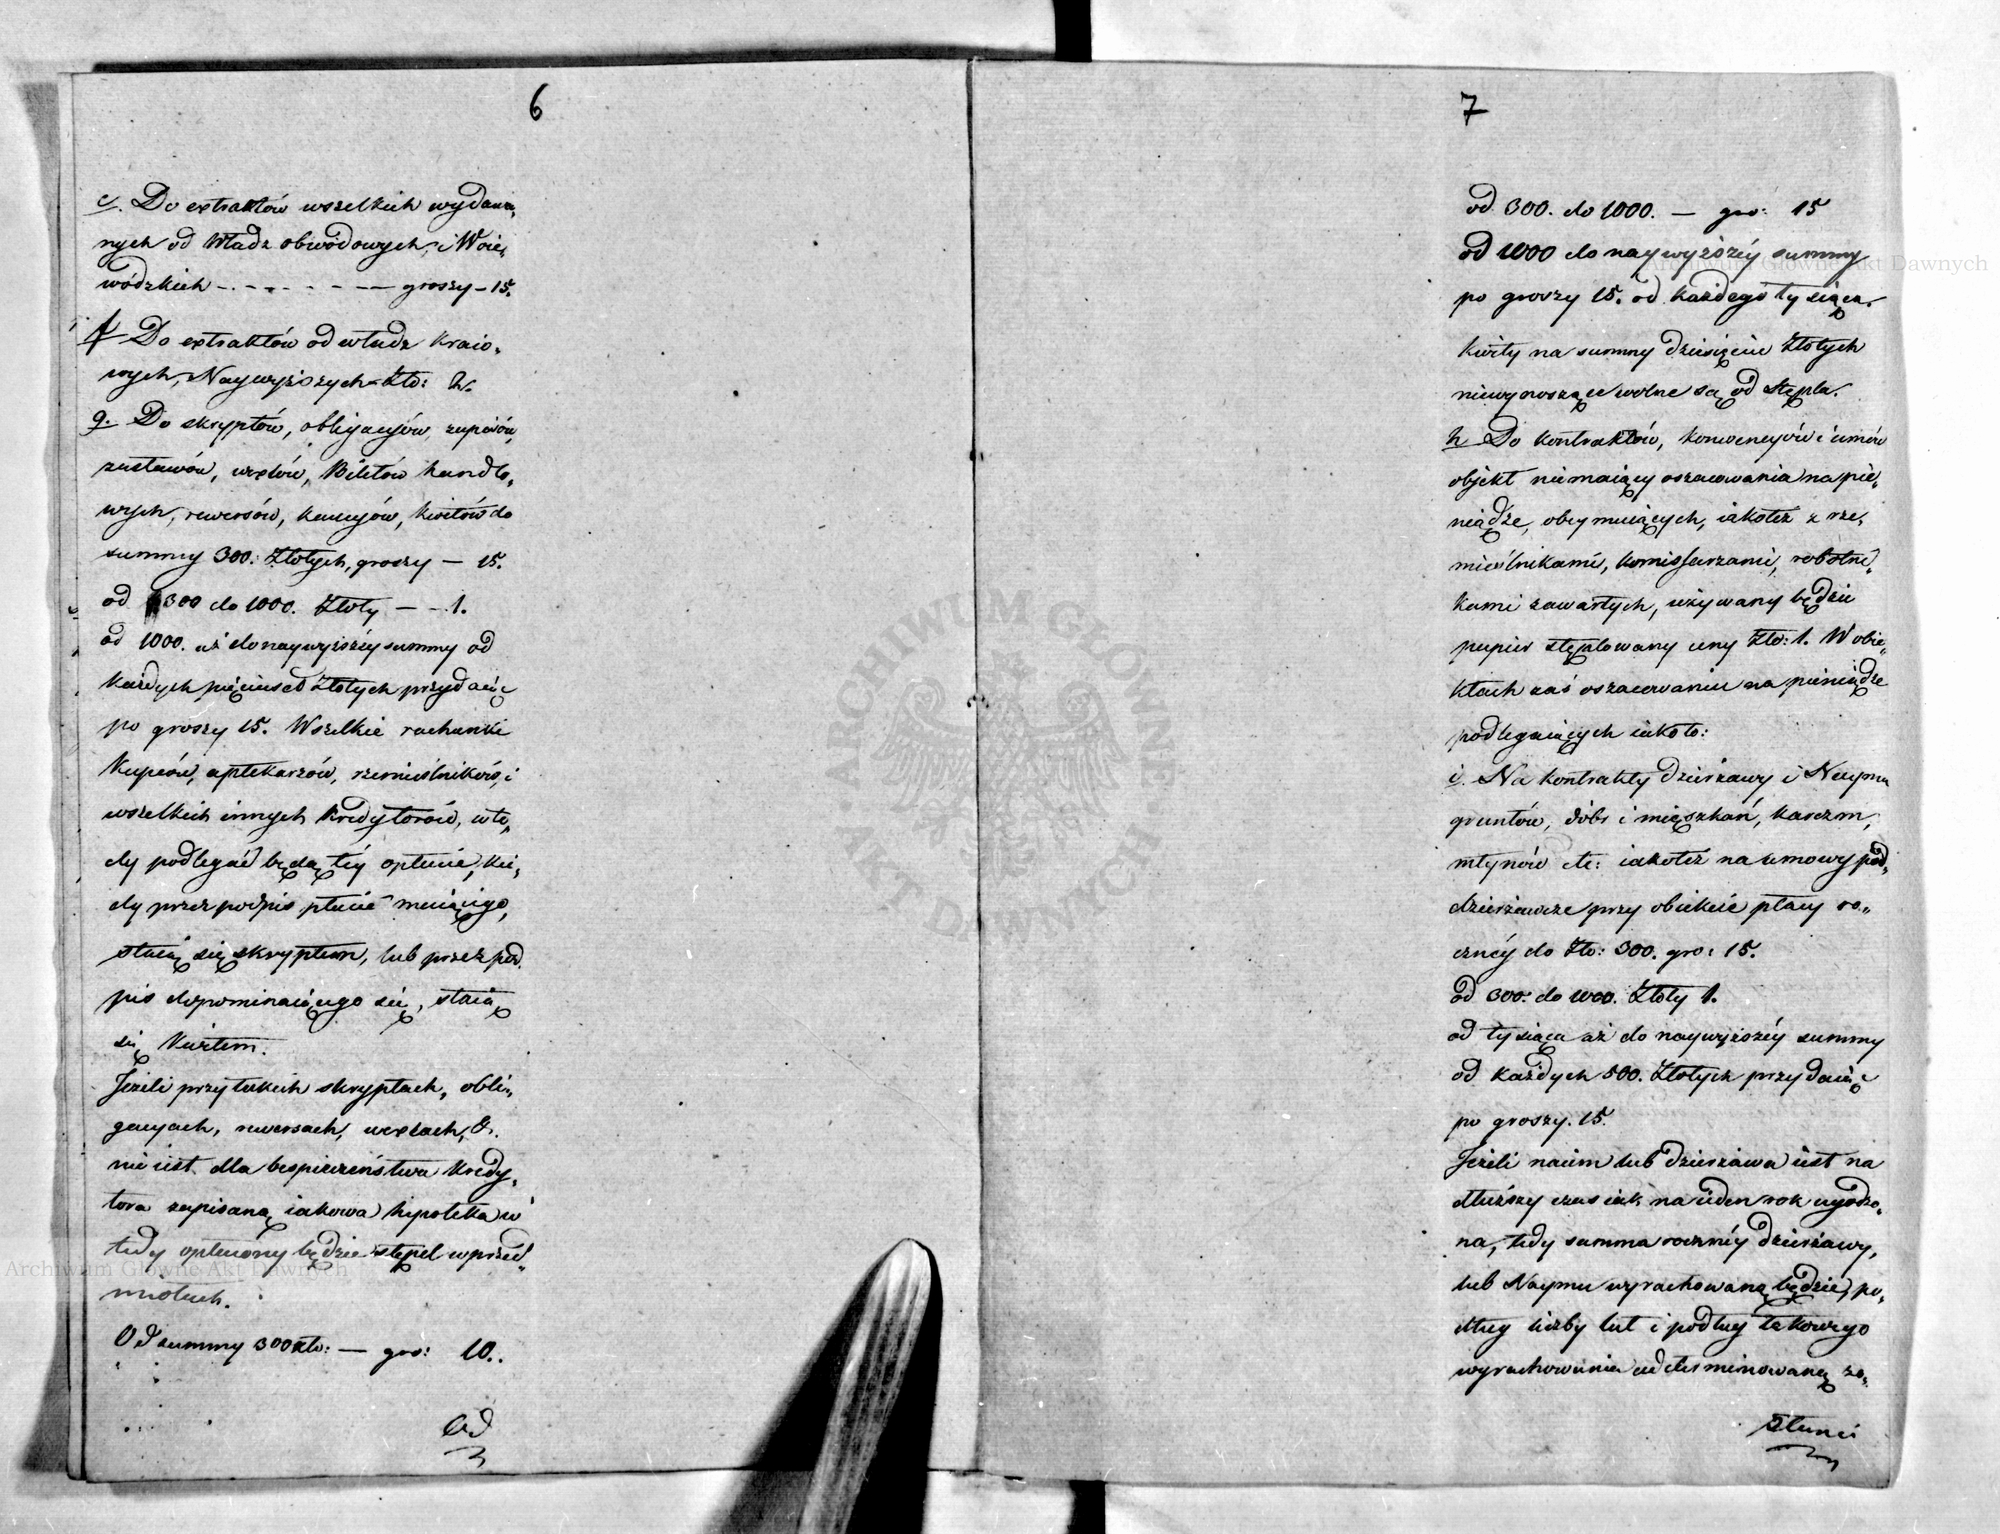 6
e. Do extraktów wszelkich wydawa„
nych od Władz obwodowych, i Woie„
wódzkich - - - - - - - groszy - 15.
f Do extraktów od władz kraio„
wych, Naywyższych - Zło: 2.
g. Do skryptów, obligacyów, zapisów,
zastawów, wexlów, Biletów handlo„
wych, rewersów, kaucyów, kwitów do
summy 300: Złotych, groszy — 15.
od 300 do 1000. Złoty — - 1.
od 1000. aż do naywyższéy summy od
każdych pięciuset Złotych przydaiąc
po groszy 15. Wszelkie rachunki
Kupców, aptekarzów, rzemieślników, i
wszelkich innych kredytorów, wte„
dy podlegać będą téy opłacie, kie„
dy przez podpis płacić maiącego,
staią się skryptem, lub przez pod„
pis dopominaiącego się, staią
się kwitem.
Jeżeli przy takich skryptach, obli„
gacyach, rewersach, wexlach, &.
nie iest dla bespieczeństwa kredy„
tora zapisaną iakowa hipoteka w
tedy opłacony będzie stępel w przed„
miotach.
Od summy 300 zło: — gro: 10..
Od
7
od 300. do 1000. — gro: 15
od 1000 do naywyższéy summy
po groszy 15. od każdego tysiąca.
kwity na summy dziesięciu Złotych
niewynoszące wolne są od stępla.
h Do kontraktów, konwencyów i umów
objekt niemaiący oszacowania na pie„
niądze, obeymuiących, iakoteż z rze„
mieślnikami, komissarzami, robotni„
kami zawartych, używany będzie
papier stęplowany ceny Zło: 1. W obie„
ktach zaś oszacowaniu na pieniądze
podlegaiących iakoto:
i. Na kontrakty dzierżawy i Naymu
gruntów, dóbr i mięszkań, karczm,
młynów etc: iakoteż na umowy pod„
dzierżawcze przy obiekcie płacy ro„
cznéy do Zło: 300. gro: 15.
od 300. do 1000. Złoty 1.
od tysiąca aż do naywyższéy summy
od każdych 500. Złotych przydaiąc
po groszy. 15.
Jeżeli naiem lub dzierżawa iest na
dłuższy czas iak na ieden rok ugodzo„
na, tedy summa rocznéy dzierżawy,
lub Naymu wyrachowaną będzie, po„
dług liczby lat i podług takowego
wyrachowania determinowaną zo„
stanie
Archiwum Główne Akt Dawnych
Archiwum Główne Akt Dawnych
ARCHIWUM GŁÓWNE AKT DAWNYCH